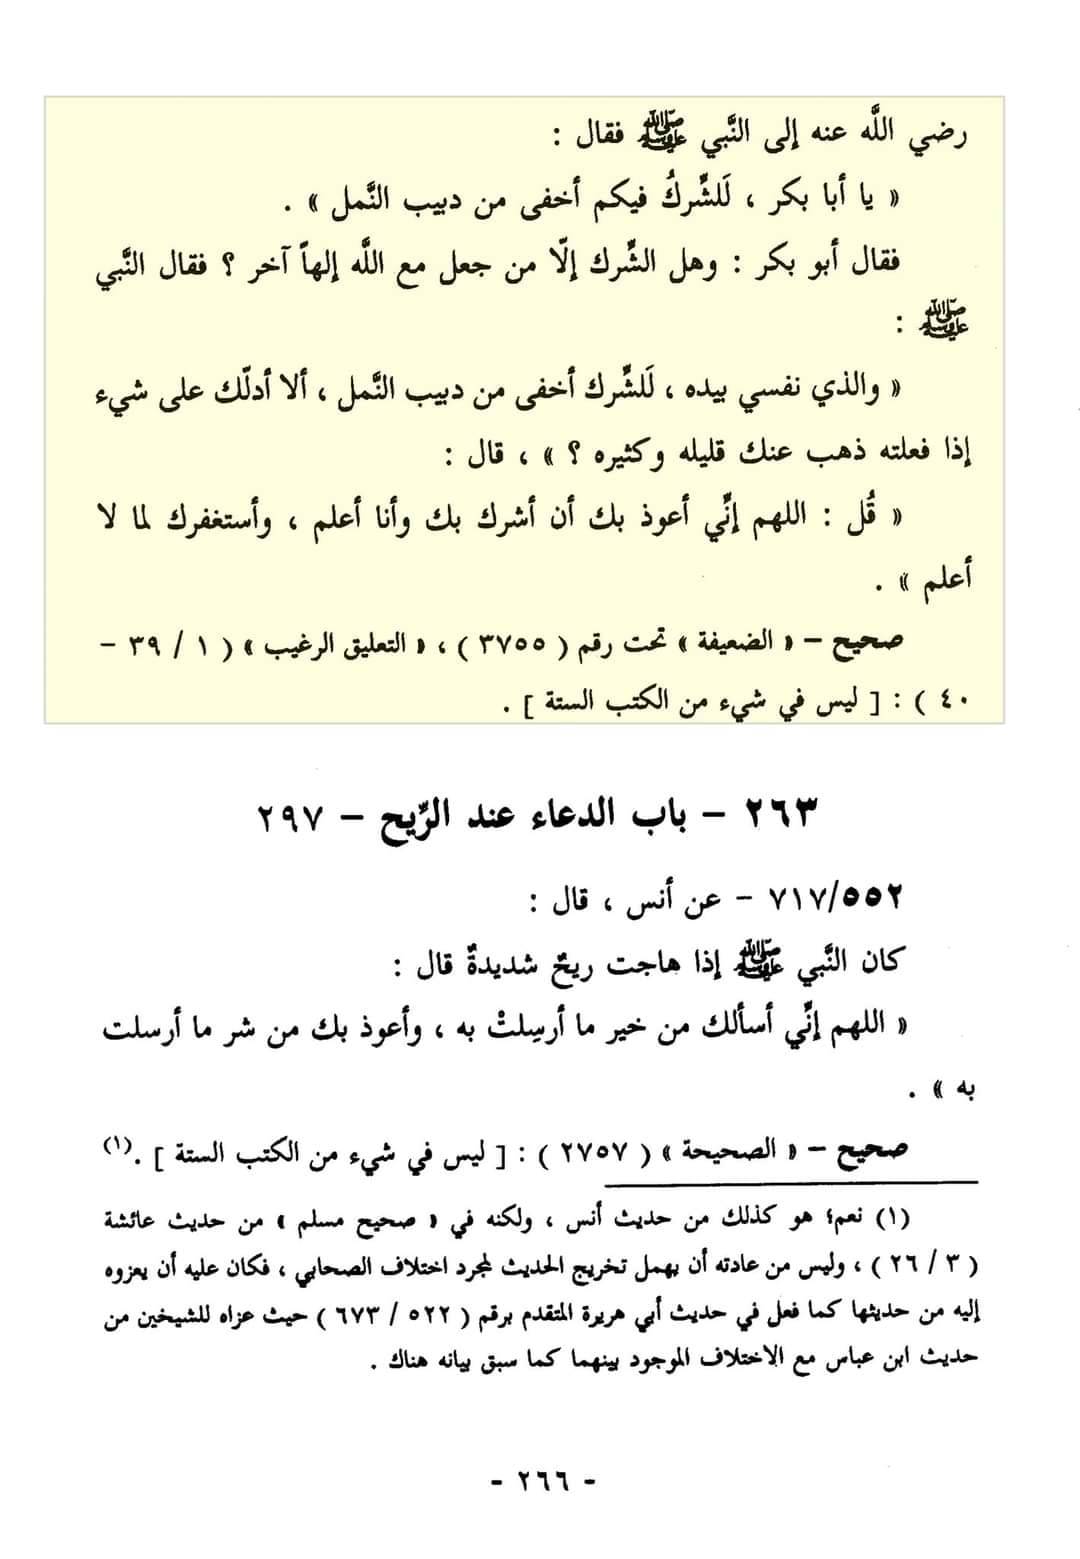 رضي اللَّه عنه إلى النَّبي ﷺ فقال :
« يا أبا بكر ، لَلشِّركُ فيكم أخفى من دبيب النَّمل » .
فقال أبو بكر : وهل الشِّرك إلّا من جعل مع اللَّه إلهاً آخر ؟ فقال النَّبي
ﷺ :
« والذي نفسي بيده ، لَلشِّرك أخفى من دبيب النَّمل ، ألا أدلّك على شيء
إذا فعلته ذهب عنك قليله وكثيره ؟ » ، قال :
« قُل : اللهم إنِّي أعوذ بك أن أشرك بك وأنا أعلم ، وأستغفرك لما لا
أعلم » .
صحيح – « الضعيفة » تحت رقم ( ٣٧٥٥ ) ، « التعليق الرغيب » ( ١ / ٣٩ –
٤٠ ) : [ ليس في شيء من الكتب الستة ] .
٢٦٣ – باب الدعاء عند الرِّيح – ٢٩٧
٧١٧/٥٥٢ – عن أنس ، قال :
كان النَّبي ﷺ إذا هاجت ريحٌ شديدةٌ قال :
« اللهم إنِّي أسألك من خير ما أرسِلتْ به ، وأعوذ بك من شر ما أرسلت
به » .
صحيح – « الصحيحة » ( ٢٧٥٧ ) : [ ليس في شيء من الكتب الستة ] .(١)
(١) نعم؛ هو كذلك من حديث أنس ، ولكنه في « صحيح مسلم » من حديث عائشة
( ٣ / ٢٦ ) ، وليس من عادته أن يهمل تخريج الحديث لمجرد اختلاف الصحابي ، فكان عليه أن يعزوه
إليه من حديثها كما فعل في حديث أبي هريرة المتقدم برقم ( ٥٢٢ / ٦٧٣ ) حيث عزاه للشيخين من
حديث ابن عباس مع الاختلاف الموجود بينهما كما سبق بيانه هناك .
- ٢٦٦ -